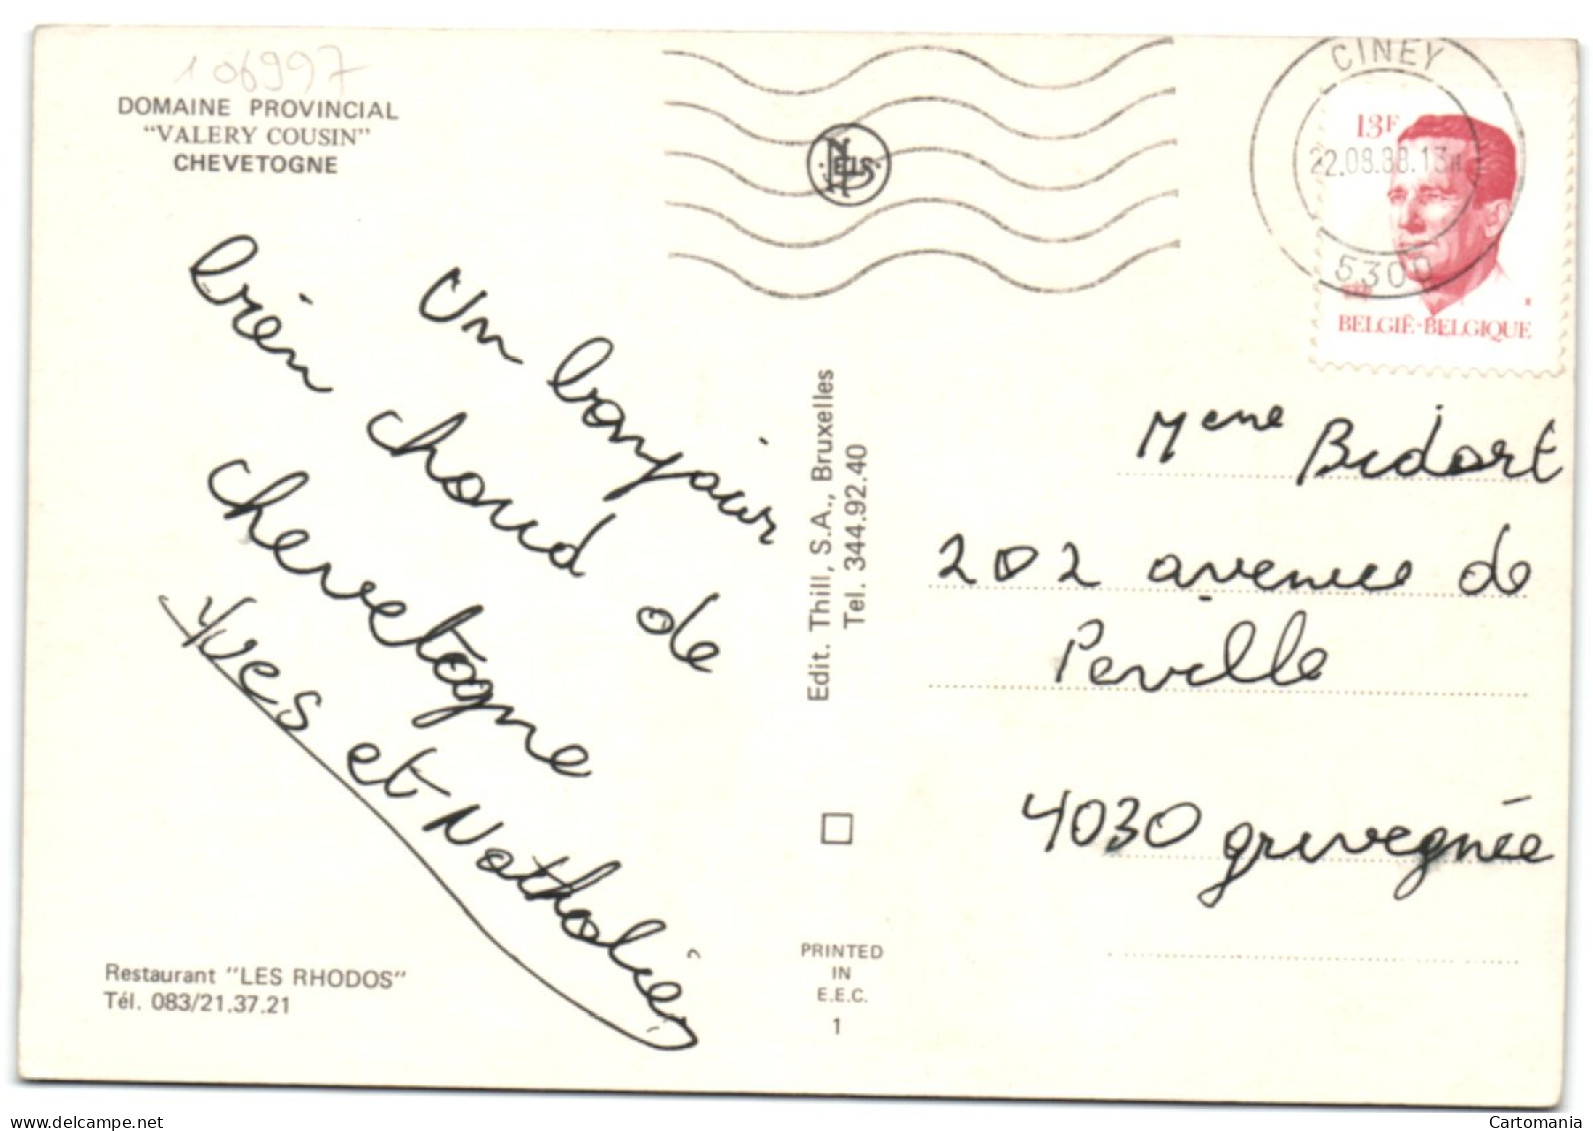 106997
DOMAINE PROVINCIAL
"VALERY COUSIN"
CHEVETOGNE
NELS
CINEY
22.08.88.13H
5300
13F
BELGIË-BELGIQUE
Un bonjour
bién chaud de
chevetogne
Yves et Nathalie
Edit. Thill, S.A., Bruxelles
Tel. 344.92.40
Meme Bidart
202 avenue de
Peville
4030 grivegnée
Restaurant "LES RHODOS"
Tél. 083/21.37.21
PRINTED
IN
E.E.C.
1
Cartomania
www.delcampe.net